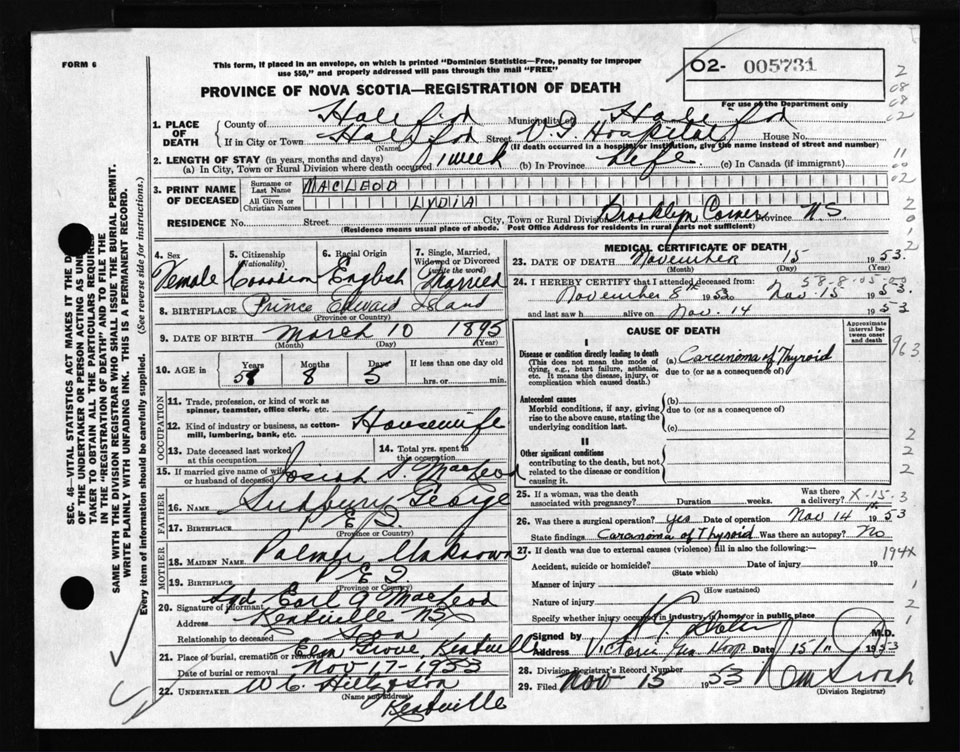 FORM 6
This form, if placed in an envelope, on which is printed "Dominion Statistics—Free, penalty for improper
use $50," and properly addressed will pass through the mail "FREE"
02- 005731
For use of the Department only
PROVINCE OF NOVA SCOTIA—REGISTRATION OF DEATH
1. PLACE OF DEATH
County of Halifax Municipality of Halifax
If in City or Town Halifax (Name) Street V. G. Hospital House No.
(If death occurred in a hospital or institution, give the name instead of street and number)
2. LENGTH OF STAY (in years, months and days)
(a) In City, Town or Rural Division where death occurred 1 week (b) In Province Life (c) In Canada (if immigrant)
3. PRINT NAME OF DECEASED
Surname or Last Name MACLEOD
All Given or Christian Names LYDIA
RESIDENCE No. Street City, Town or Rural Division Brooklyn Corner Province N.S.
(Residence means usual place of abode. Post Office Address for residents in rural parts not sufficient)
4. Sex Female
5. Citizenship (Nationality) Canadian
6. Racial Origin English
7. Single, Married, Widowed or Divorced (write the word) Married
8. BIRTHPLACE Prince Edward Island
(Province or Country)
9. DATE OF BIRTH March 10 1895
(Month) (Day) (Year)
10. AGE in Years 58 Months 8 Days 5 If less than one day old hrs. or min.
OCCUPATION
11. Trade, profession, or kind of work as spinner, teamster, office clerk, etc.
12. Kind of industry or business, as cotton-mill, lumbering, bank, etc. Housewife
13. Date deceased last worked at this occupation
14. Total yrs. spent in this occupation
15. If married give name of wife or husband of deceased Josiah S. MacLeod
FATHER
16. Name George
17. Birthplace P E I.
(Province or Country)
MOTHER
18. MAIDEN NAME Palmer Unknown
19. Birthplace P E I
(Province or Country)
20. Signature of informant Sgd Earl A MacLeod
Address Kentville NS
Relationship to deceased Son
21. Place of burial, cremation or removal Elm Grove, Kentville
Date of burial or removal Nov 17 - 1953
22. UNDERTAKER W C
(Name and address)
Kentville
MEDICAL CERTIFICATE OF DEATH
23. DATE OF DEATH November 15 1953.
(Month) (Day) (Year)
24. I HEREBY CERTIFY that I attended deceased from:
58-8-05
November 8th 1953 to Nov 15 1953
and last saw h alive on Nov. 14 1953
CAUSE OF DEATH
Approximate interval between onset and death
I
Disease or condition directly leading to death
(This does not mean the mode of dying, e.g., heart failure, asthenia, etc. It means the disease, injury, or complication which caused death.)
(a) Carcinoma of Thyroid
due to (or as a consequence of)
Antecedent causes
Morbid conditions, if any, giving rise to the above cause, stating the underlying condition last.
(b)
due to (or as a consequence of)
(c)
II
Other significant conditions
contributing to the death, but not related to the disease or condition causing it.
25. If a woman, was the death associated with pregnancy? Duration weeks. Was there a delivery? X-15-3
26. Was there a surgical operation? Yes Date of operation Nov 14th 1953
State findings Carcinoma of Thyroid Was there an autopsy? No
27. If death was due to external causes (violence) fill in also the following: 194X
Accident, suicide or homicide? Date of injury 19
(State which)
Manner of injury
(How sustained)
Nature of injury
Specify whether injury occurred in industry, in home or in public place
Signed by M.D.
Address Victoria Gen Hosp Date 15/11 1953
28. Division Registrar's Record Number
29. Filed Nov 15 1953
(Division Registrar)
SEC. 46—VITAL STATISTICS ACT MAKES IT THE
OF THE UNDERTAKER OR PERSON ACTING AS
TAKER TO OBTAIN ALL THE PARTICULARS REQUIRED
IN THE "REGISTRATION OF DEATH" AND TO FILE THE
SAME WITH THE DIVISION REGISTRAR WHO SHALL ISSUE THE BURIAL PERMIT.
WRITE PLAINLY WITH UNFADING INK. THIS IS A PERMANENT RECORD.
Every item of information should be carefully supplied. (See reverse side for instructions.)
2
08
08
02
11
00
02
2
0
1
2
963
2
2
2
1
2
1